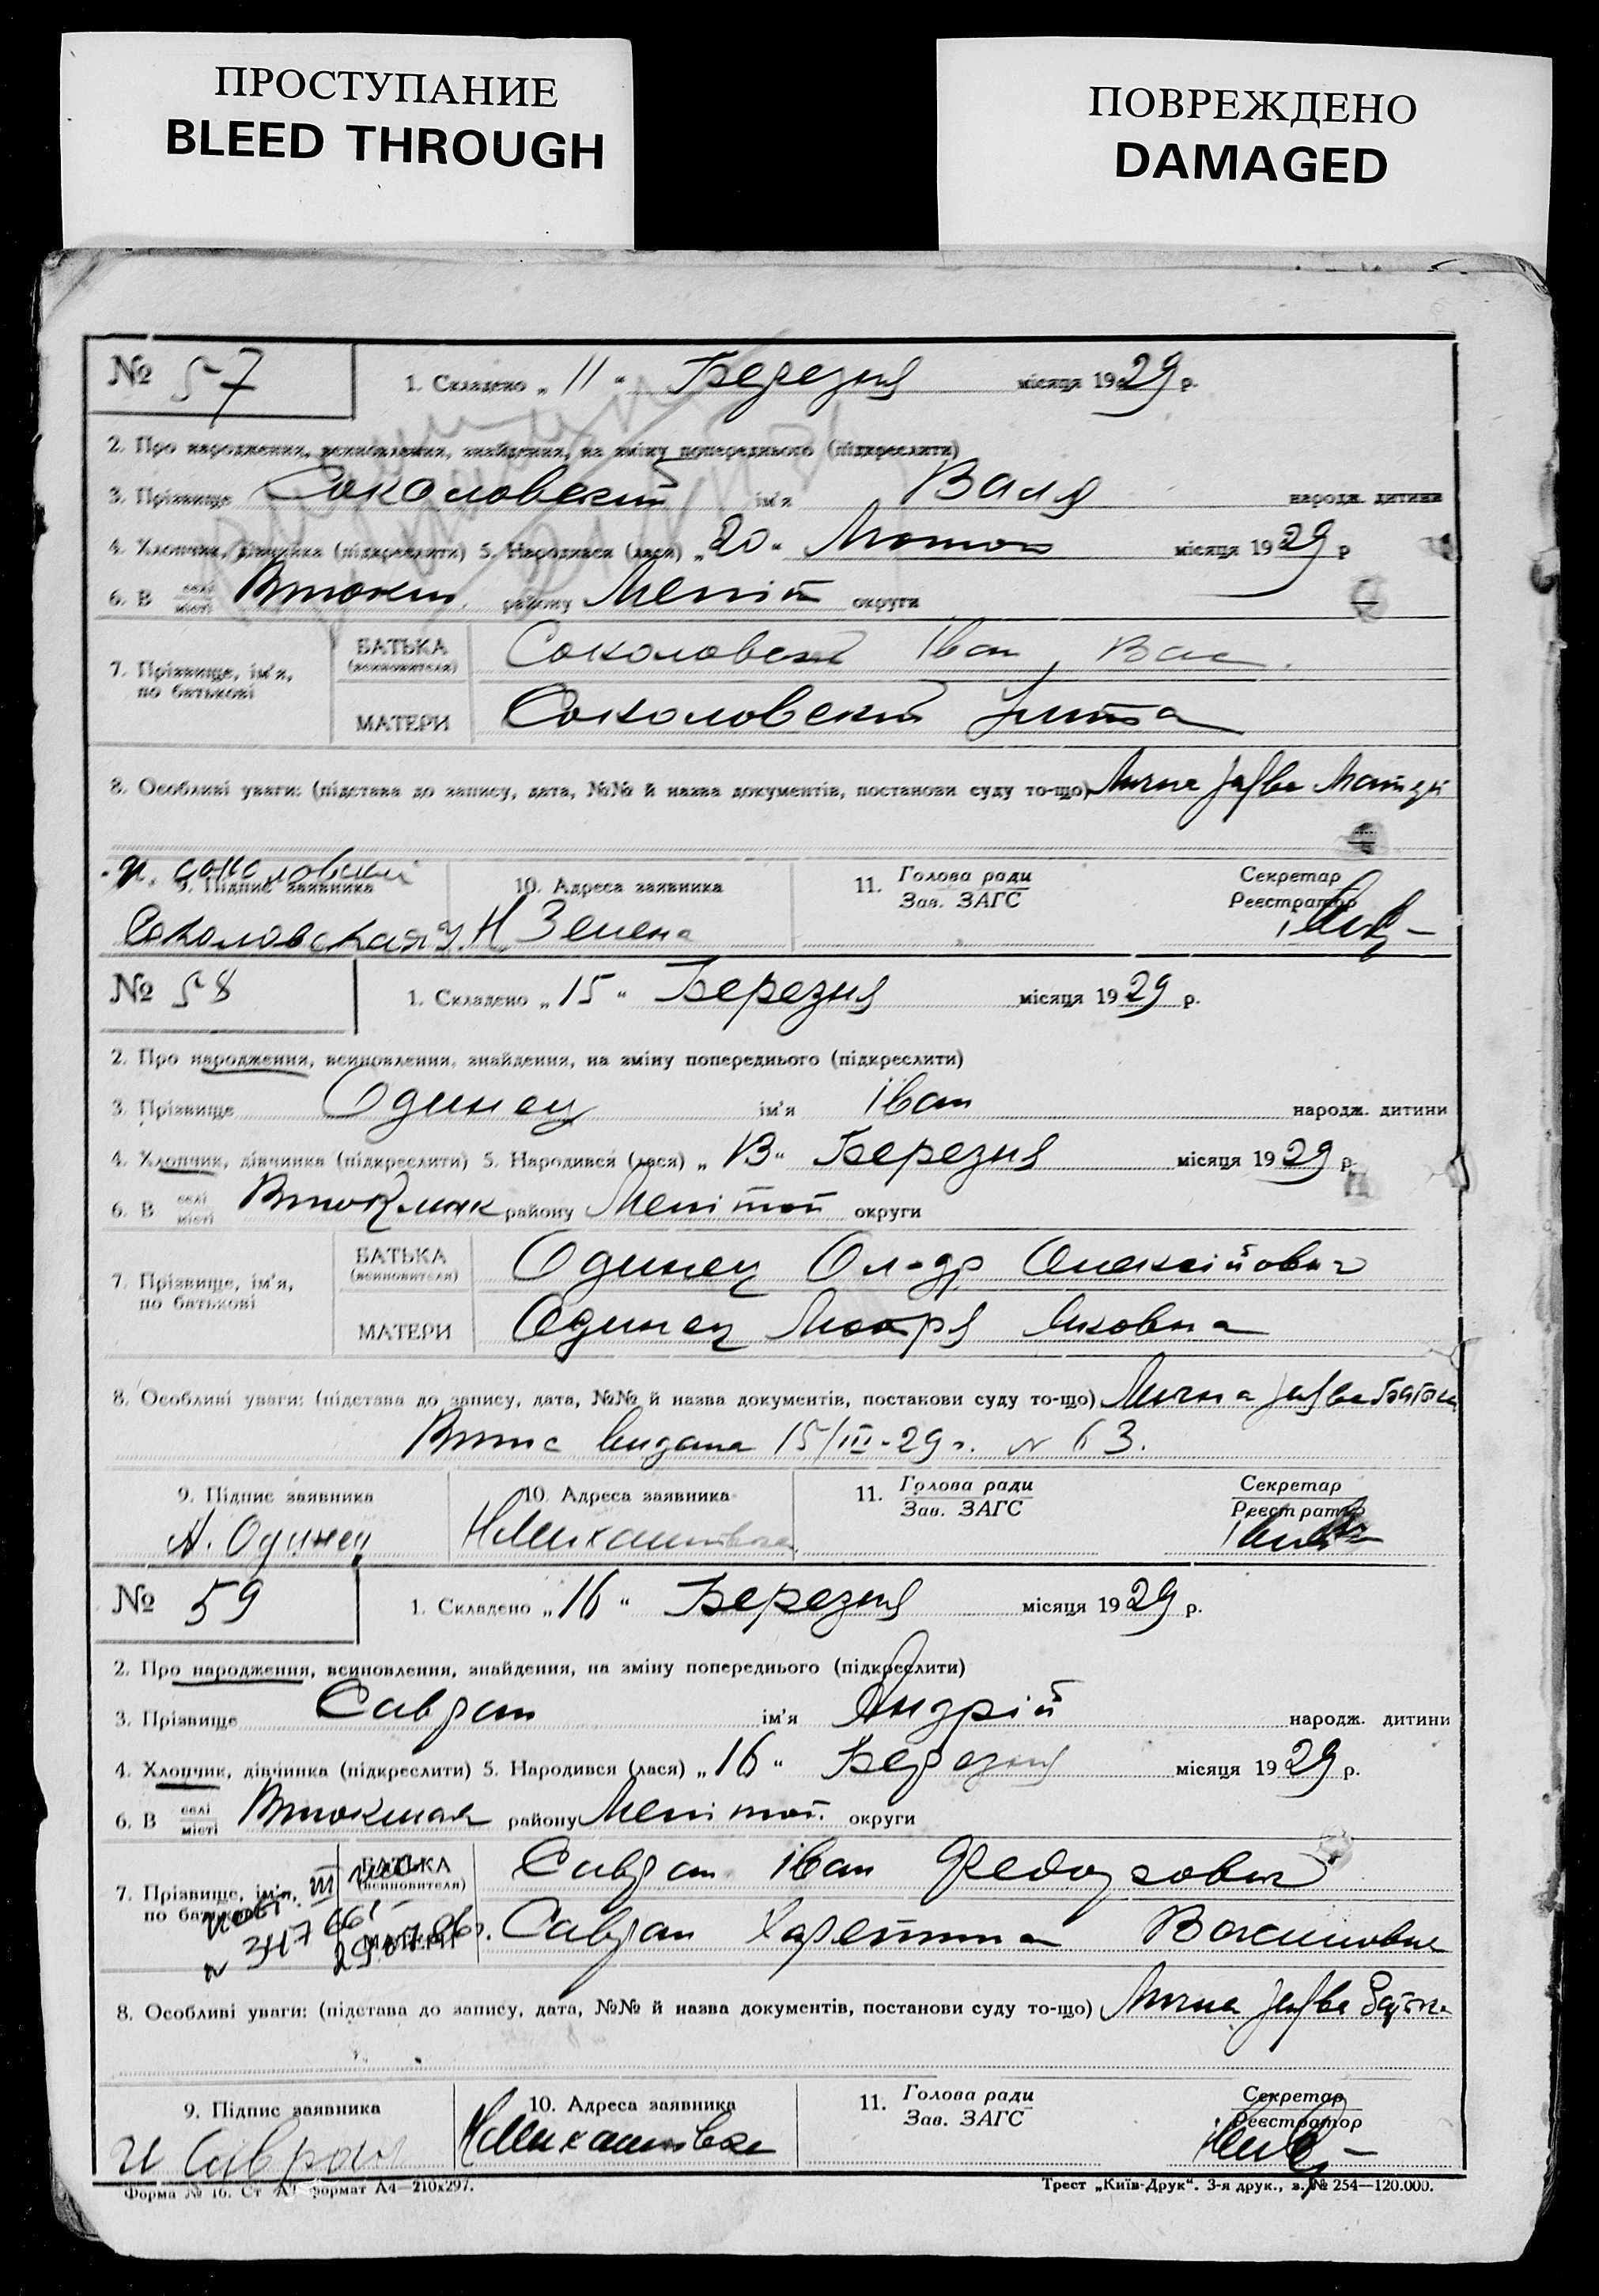 ПРОСТУПАНИЕ
BLEED THROUGH
ПОВРЕЖДЕНО
DAMAGED
№ 57
1. Складено „ 11 “ Березня місяця 1929 р.
2. Про народження, всиновлення, знайдення, на зміну попереднього (підкреслити)
3. Прізвище Соколовский ім'я Валя народж. дитини
4. Хлопчик, дівчинка (підкреслити) 5. Народився (лася) „ 20 “ Лютого місяця 1929 р
6. В селі місті района Меліт округи
7. Прізвище, ім'я, по батькові
БАТЬКА (всиновителя) Соколовский Іван Вас.
МАТЕРИ Соколовский
8. Особливі уваги: (підстава до запису, дата, №№ й назва документів, постанови суду то-що) Лична Матері
И. Соколовский
9. Підпис заявника
Соколовская
10. Адреса заявника
Н Зелена
11. Голова ради
Зав. ЗАГС
Секретар
Реєстратор
№ 58
1. Складено „ 15 “ Березня місяця 1929 р.
2. Про народження, всиновлення, знайдення, на зміну попереднього (підкреслити)
3. Прізвище Одинец ім'я Іван народж. дитини
4. Хлопчик, дівчинка (підкреслити) 5. Народився (лася) „ 13 “ Березня місяця 1929 р.
6. В селі місті району Мелітоп округи
7. Прізвище, ім'я, по батькові
БАТЬКА (всиновителя) Одинец Ол-др Олексійович
МАТЕРИ Одинец Яковна
8. Особливі уваги: (підстава до запису, дата, №№ й назва документів, постанови суду то-що) Лична батька
Випис видана 15/III-29 г. № 63.
9. Підпис заявника
А. Одинец
10. Адреса заявника
Н Михайлівка
11. Голова ради
Зав. ЗАГС
Секретар
Реєстратор
№ 59
1. Складено „ 16 “ Березня місяця 1929 р.
2. Про народження, всиновлення, знайдення, на зміну попереднього (підкреслити)
3. Прізвище Савран ім'я Андрій народж. дитини
4. Хлопчик, дівчинка (підкреслити) 5. Народився (лася) „ 16 “ Березня місяця 1929 р.
6. В селі місті району Мелітоп. округи
7. Прізвище, ім'я, по батькові
БАТЬКА (всиновителя) Савран Іван Федорович
МАТЕРИ Савран
8. Особливі уваги: (підстава до запису, дата, №№ й назва документів, постанови суду то-що) Лична батька
9. Підпис заявника
И Савран
10. Адреса заявника
Н Михайлівка
11. Голова ради
Зав. ЗАГС
Секретар
Реєстратор
Форма № 16. Ст формат А4—210х297.
Трест „Київ-Друк“. 3-я друк., з. № 254—120.000.